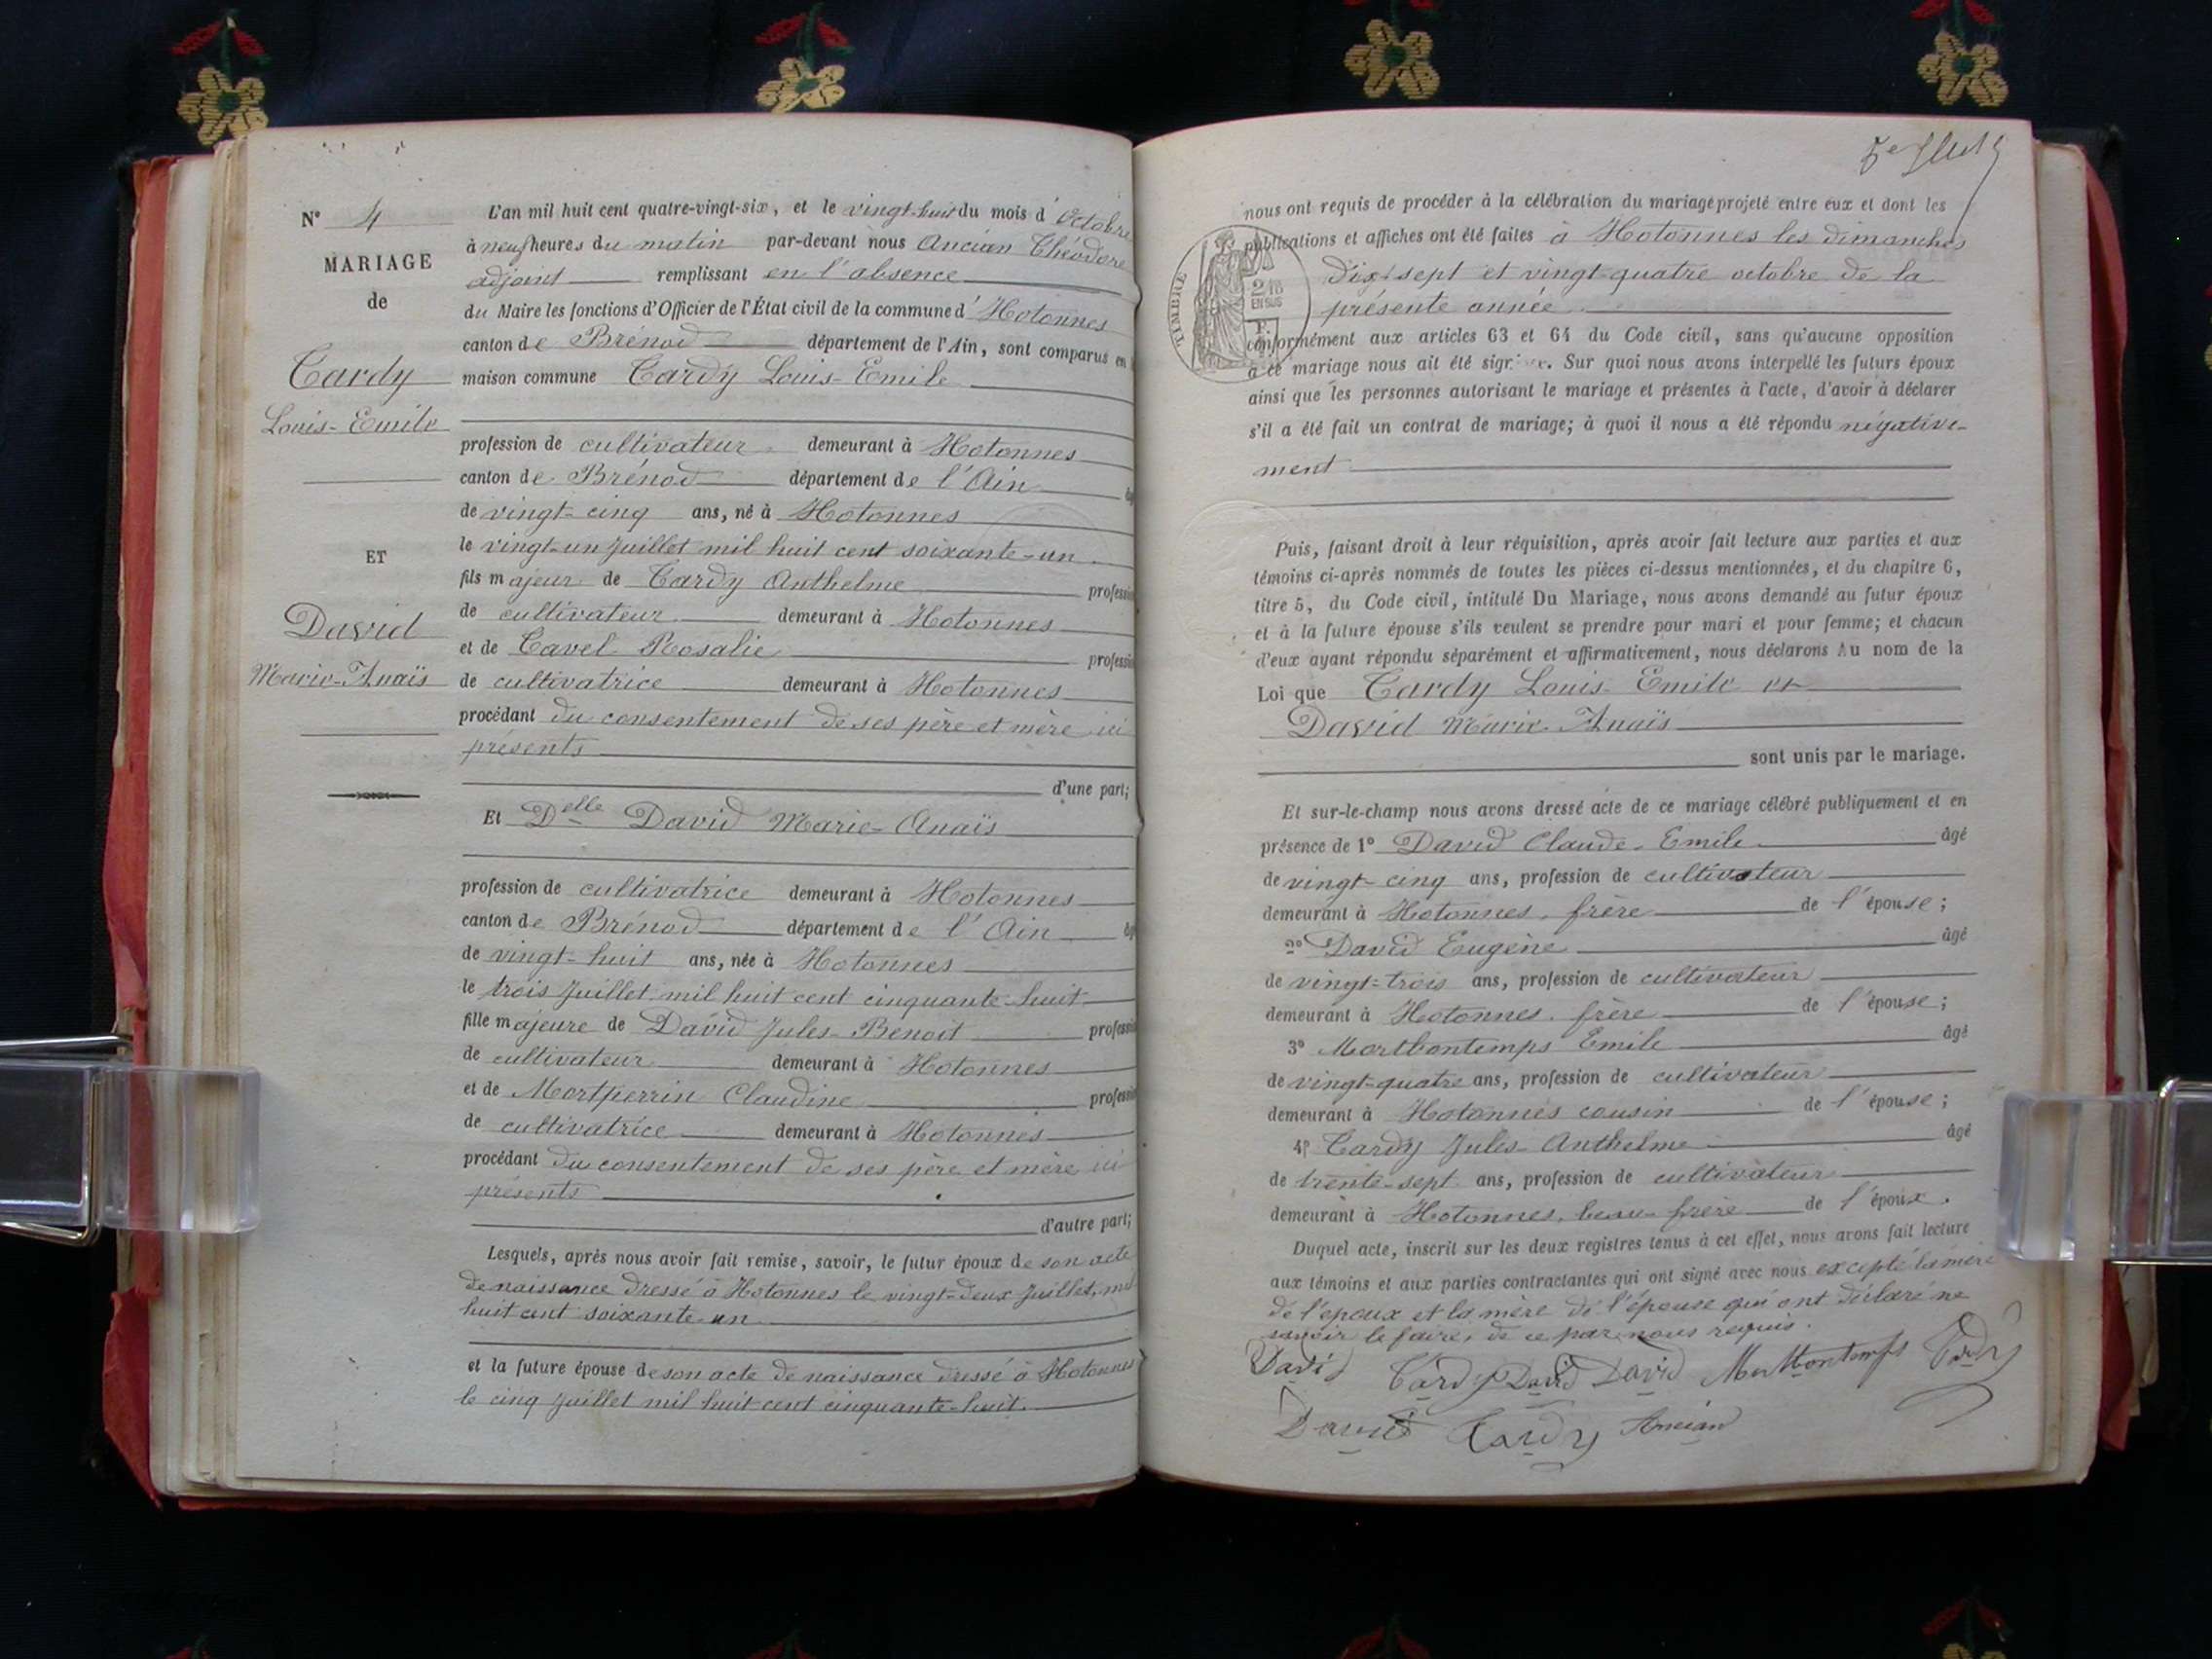 N° 4
MARIAGE
de
Cardy
Louis-Emile
ET
David
Marie-Anaïs
L'an mil huit cent quatre-vingt-six, et le vingt-huit du mois d'Octobre
à neuf heures du matin par-devant nous Ancian Théodore
adjoint remplissant en l'absence
du Maire les fonctions d'Officier de l'État civil de la commune d'Hotonnes
canton de Brénod département de l'Ain, sont comparus en
maison commune Cardy Louis-Emile
profession de cultivateur demeurant à Hotonnes
canton de Brénod département de l'Ain
de vingt-cinq ans, né à Hotonnes
le vingt-un Juillet mil huit cent soixante-un
fils majeur de Cardy Anthelme profession
de cultivateur demeurant à Hotonnes
et de Cavel Rosalie profession
de cultivatrice demeurant à Hotonnes
procédant du consentement de ses père et mère ici
présents
d'une part;
Et Delle David Marie-Anaïs
profession de cultivatrice demeurant à Hotonnes
canton de Brénod département de l'Ain
de vingt-huit ans, née à Hotonnes
le trois Juillet mil huit cent cinquante-huit
fille majeure de David Jules-Benoit profession
de cultivateur demeurant à Hotonnes
et de Mortperrin Claudine profession
de cultivatrice demeurant à Hotonnes
procédant du consentement de ses père et mère ici
présents
d'autre part;
Lesquels, après nous avoir fait remise, savoir, le futur époux de son acte
de naissance dressé à Hotonnes le vingt-deux Juillet, mil
huit cent soixante-un
et la future épouse de son acte de naissance dressé à Hotonnes
le cinq Juillet mil huit cent cinquante-huit.
nous ont requis de procéder à la célébration du mariage projeté entre eux et dont les
publications et affiches ont été faites à Hotonnes les dimanches
dix-sept et vingt-quatre octobre de la
présente année
TIMBRE
2/10
EN SUS
conformément aux articles 63 et 64 du Code civil, sans qu'aucune opposition
à ce mariage nous ait été signifiée. Sur quoi nous avons interpellé les futurs époux
ainsi que les personnes autorisant le mariage et présentes à l'acte, d'avoir à déclarer
s'il a été fait un contrat de mariage; à quoi il nous a été répondu négative-
ment
Puis, faisant droit à leur réquisition, après avoir fait lecture aux parties et aux
témoins ci-après nommés de toutes les pièces ci-dessus mentionnées, et du chapitre 6,
titre 5, du Code civil, intitulé Du Mariage, nous avons demandé au futur époux
et à la future épouse s'ils veulent se prendre pour mari et pour femme; et chacun
d'eux ayant répondu séparément et affirmativement, nous déclarons Au nom de la
Loi que Cardy Louis-Emile et
David Marie-Anaïs
sont unis par le mariage.
Et sur-le-champ nous avons dressé acte de ce mariage célébré publiquement et en
présence de 1° David Claude-Emile âgé
de vingt-cinq ans, profession de cultivateur
demeurant à Hotonnes, frère de l'épouse;
2° David Eugène âgé
de vingt-trois ans, profession de cultivateur
demeurant à Hotonnes. frère de l'épouse;
3° Mortbontemps Emile âgé
de vingt-quatre ans, profession de cultivateur
demeurant à Hotonnes cousin de l'épouse;
4° Cardy Jules-Anthelme âgé
de trente-sept ans, profession de cultivateur
demeurant à Hotonnes, beau-frère de l'époux.
Duquel acte, inscrit sur les deux registres tenus à cet effet, nous avons fait lecture
aux témoins et aux parties contractantes qui ont signé avec nous excepté la mère
de l'époux et la mère de l'épouse qui ont déclaré ne
savoir le faire, de ce par nous requis.
David Cardy David David Mortbontemps Cardy
David Cardy Ancian